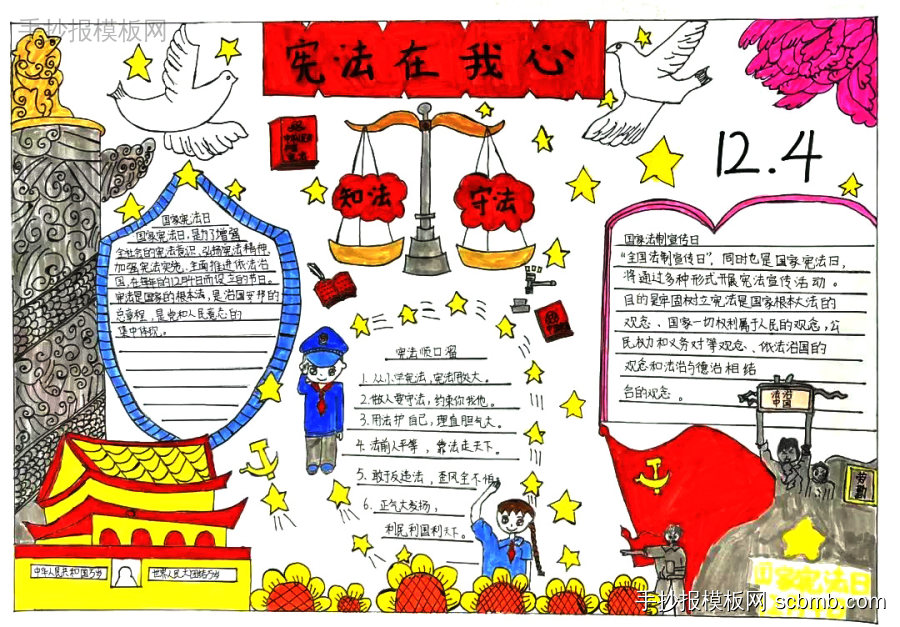 手抄报模板网
宪法在我心
12.4
知法
守法
国家宪法日
国家宪法日,是为了增强
全社会的宪法意识、弘扬宪法精神、
加强宪法实施、全面推进依法治
国,在每年的12月4日而设立的节日。
宪法是国家的根本法,是治国安邦的
总章程,是党和人民意志的
集中体现。
国家法制宣传日
“全国法制宣传日”,同时也是国家宪法日,
将通过多种形式开展宪法宣传活动。
目的是牢固树立宪法是国家根本大法的
观念、国家一切权利属于人民的观念,公
民权力和义务对等观念、依法治国的
观念和法治与德治相结
合的观念。
宪法顺口溜
1.从小学宪法,宪法用处大。
2.做人要守法,约束你我他。
3.用法护自己,理直胆气大。
4.法前人平等,靠法走天下。
5.敢于反违法,歪风全不怕
6.正气大发扬,
利民利国利天下。
法治
中国
中华人民共和国万岁
世界人民大团结万岁
国家宪法日
12月4日
手抄报模板网 scbmb.com